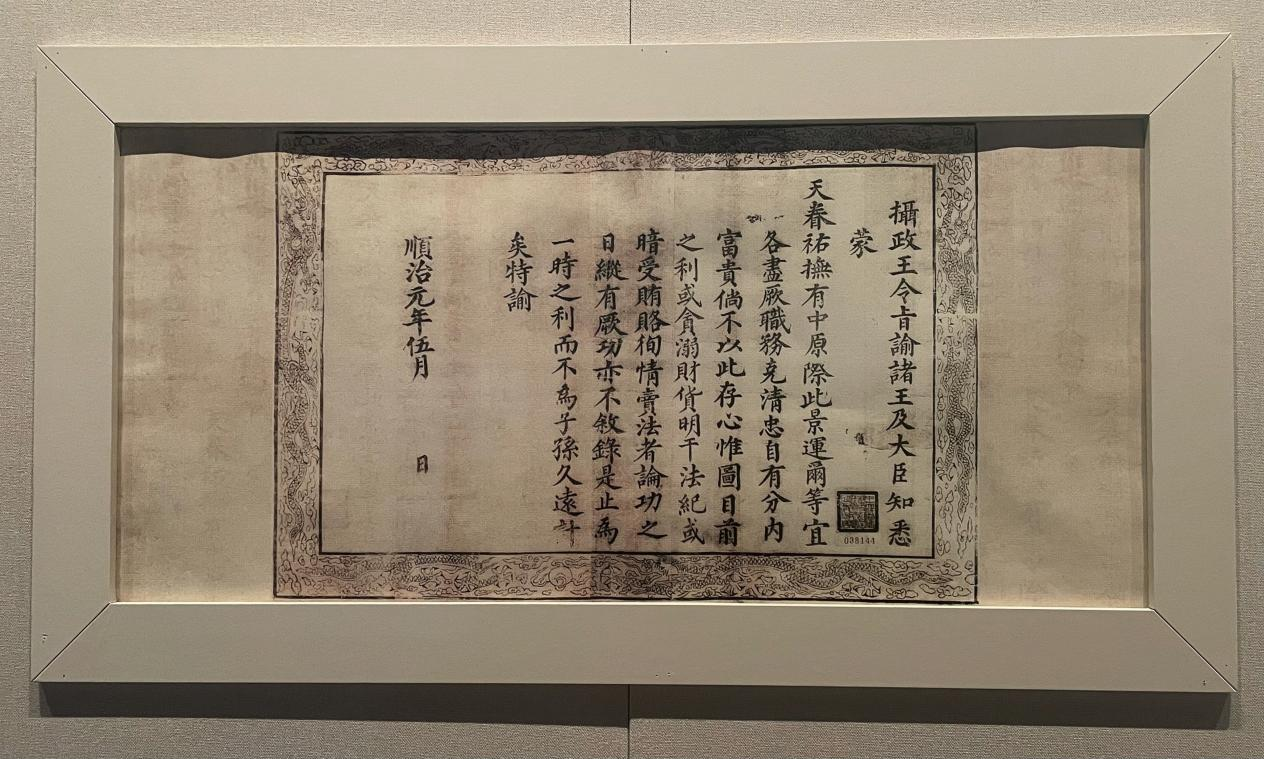 攝政王令旨諭諸王及大臣知悉
蒙
天眷祐撫有中原際此景運爾等宜
各盡厥職務克清忠自有分内
富貴倘不以此存心惟圖目前
之利或貪溺財貨明干法紀或
暗受賄賂徇情賣法者論功之
日縱有厥功亦不敘錄是止為
一時之利而不為子孫久遠計
矣特諭
順治元年伍月 日
038144